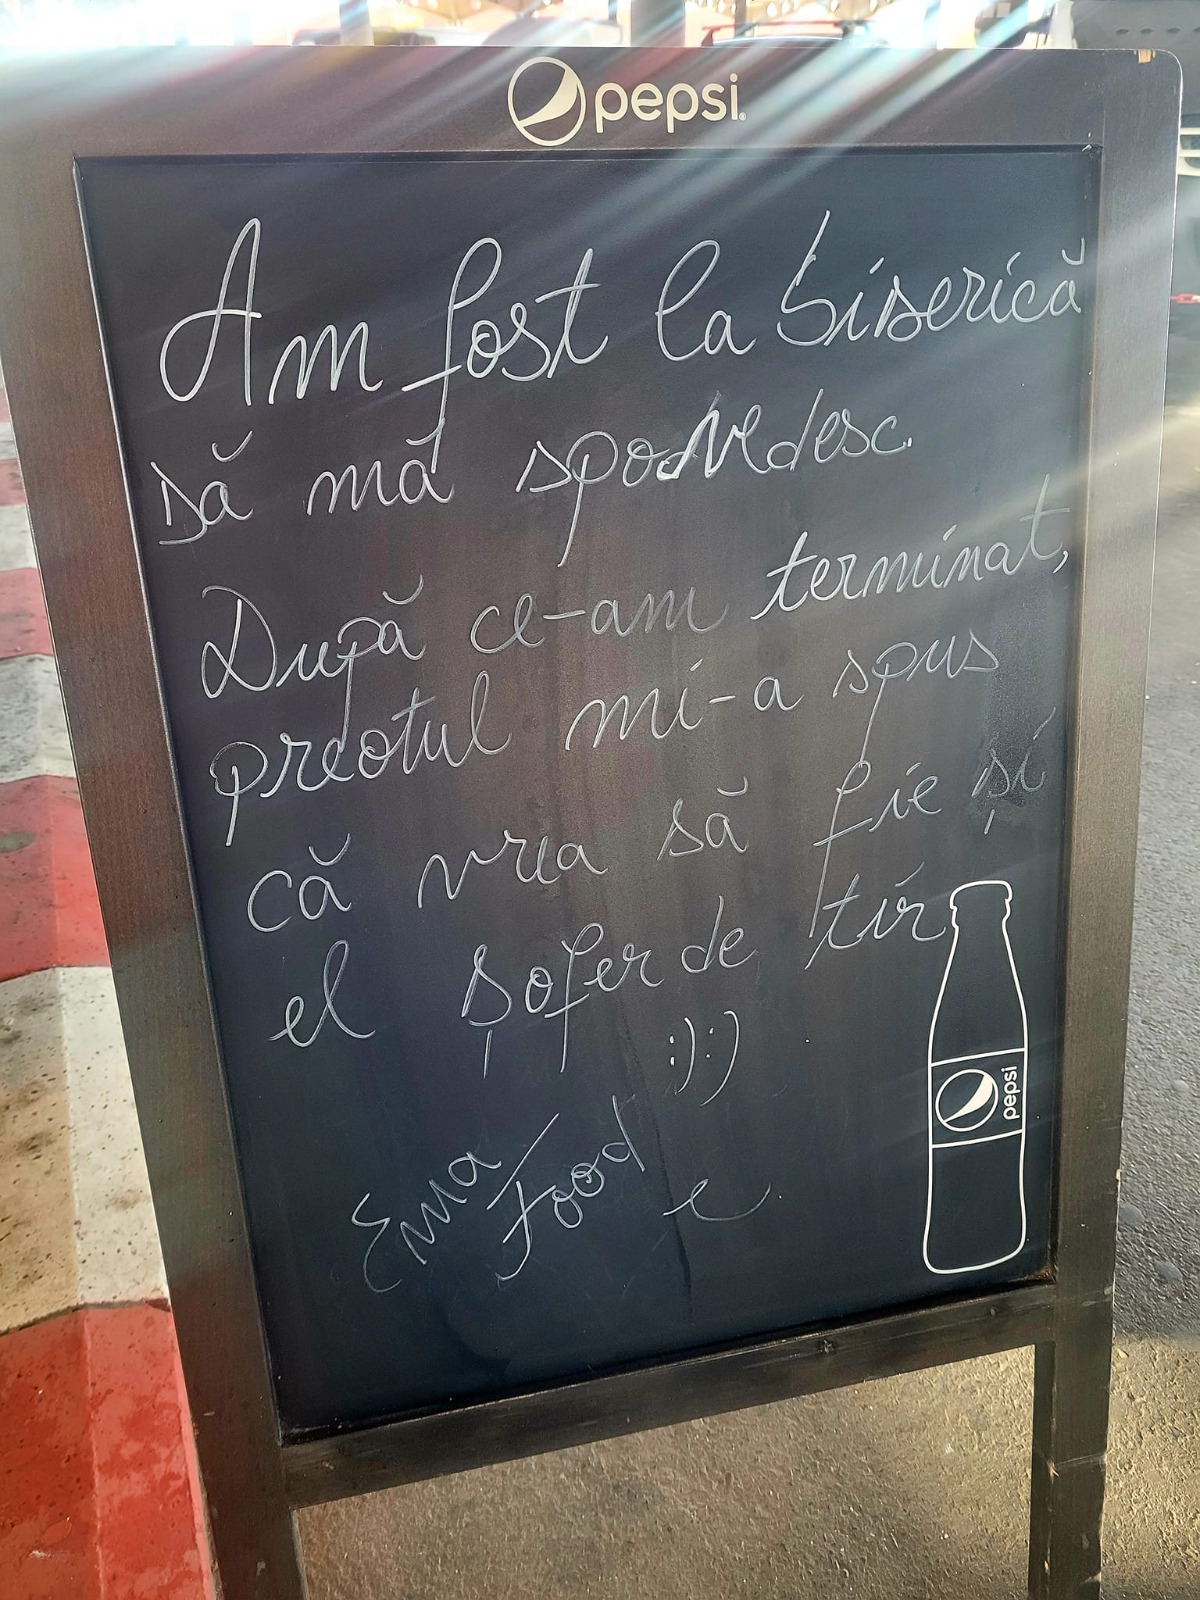 pepsi
Am fost la biserică
să mă spovedesc.
După ce-am terminat,
preotul mi-a spus
că vrea să fie și
el șofer de tir
:) :)
Ema
Food
pepsi